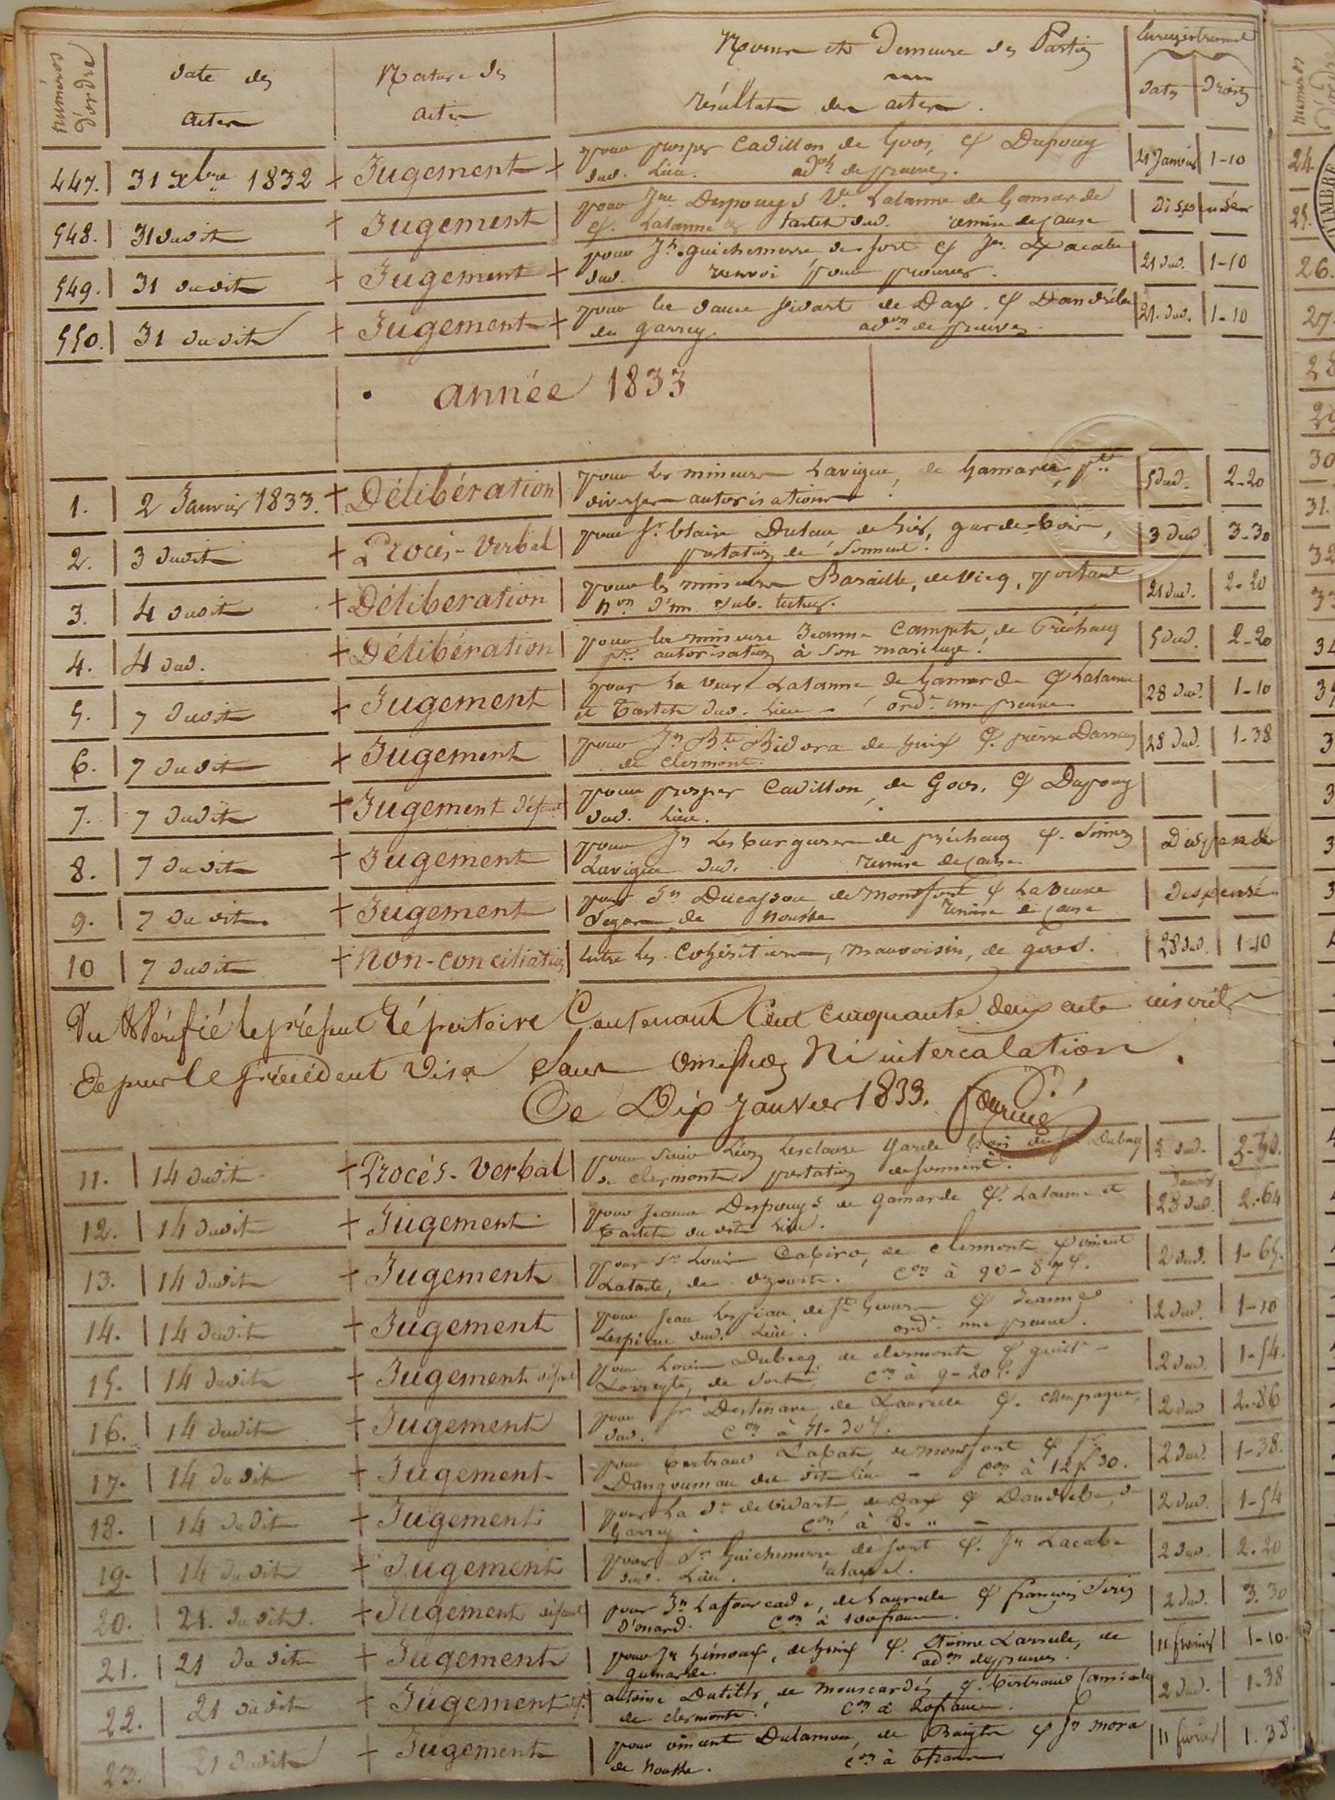 numéros d'ordre
date des actes
Nature des actes
Noms et Demeure des Parties
résultats des actes.
Enregistrement
Dates
Droits
447. 31 xbre 1832 + Jugement + pour prosper Cadillon de Goos, & Dupouy 21 Janvier 1-10
dud. Lieu. adon de preuves.
548. 31 dudit + Jugement pour Jne Despouys Ve Lalanne de Gamarde Dispensé
& Lalanne & Tartit dud. remise de cause
549. 31 dudit + Jugement + pour Jh. Guichemerre de sort & Jn Lacabe 21 dud. 1-10
dud. renvoi pour prouver.
550. 31 dudit + Jugement + pour la dame vidart de Dax. & Dandieu 21. dud. 1-10
de garrey. adon de preuves.
année 1833
1. 2 Janvier 1833. + Délibération pour les mineurs Lavigne, de Gamarde, 5 dud. 2-20
diverses autorisations.
2. 3 dudit + Procès-Verbal pour Sr. blaise Dulau de hinx, garde-bois, 3 dud 3-30
prestation de Serment.
3. 4 dudit + Délibération pour les mineurs Basaille, de Vicq, portant 21 dud. 2-20
non d'un sub. tuteur.
4. 4 dud. + Délibération pour la mineure Jeanne Campets, de Préchacq 5 dud. 2-20
pr. autorisation à son mariage.
5. 7 dudit + Jugement pour la veuve Lalanne de Gamarde & Lalanne 28 dud. 1-10
et Tartit dud. Lieu - ord. une preuve
6. 7 dudit + Jugement pour Jn Bte Bidora de hinx &. pierre Darracq 28 dud. 1-38
de Clermont.
7. 7 dudit + Jugement défaut pour prosper Cadillon, de Goos, & Dupouy
dud. Lieu.
8. 7 dudit + Jugement pour Jn Lesburgueres de préchacq &. Dispensé
Lavigne dud. remise de cause
9. 7 dudit + Jugement pour Jn Ducassou de Monfort & la veuve dispensé
de nousse remise de cause
10 7 dudit + Non-conciliation entre les Cohéritiers, mauvoisin, de goos. 28 dud. 1-10
Vu & Vérifié le présent Répertoire Contenant Cent cinquante deux acte inscrits
Depuis le précédent visa Sans omission Ni intercalation.
Ce Dix Janvier 1833.
11. 14 dudit + Procès-verbal pour Sieur Léon Lesclause garde bois 2 dud. 3-30.
de clermont prestation de serment.
12. 14 dudit + Jugement. pour jeanne Despouys de gamarde &. Lalanne et 28 dud. 2-64
Tartit dudit Lieu.
13. 14 dudit + Jugement pour Sr Louis Capiro, de clermont & vincent 2 dud. 1-65.
Latarte, de ozourt. Con à 90-87 f.
14. 14 dudit + Jugement pour Jean Lespiau, de St Geours & Jeanne 2 dud. 1-10
Lespiau dud. Lieu. ord. une preuve.
15. 14 dudit + Jugement défaut pour Louis Dubecq, de clermont & 2 dud. 1-54.
de Sort. Con à 9-20 c.
16. 14 dudit + Jugement pour Jn Destenave de Laurede &. Campagne, 2 dud 2-86
dud. Con à 41-30 f.
17. 14 dudit + Jugement. pour bertrand Labat de Monfort & 2 dud. 1-38.
Dangoumau du dit lieu - Con à 12 f. 30.
18. 14 dudit + Jugement pour la De de vidart, de Dax & 2 dud. 1-54
Garrey. Con à 8. "
19. 14 dudit + Jugement pour Jn Guichemerre de sort &. Jn Lacabe 2 dud. 2.20
dud. Lieu.
20. 21. dudit. + Jugement défaut pour Jn Lafourcade, de Laurede & françois 2 dud. 3.30
D'onard. Con à 100 francs.
21. 21 dudit + Jugement pour Jn de hinx &. Etienne Larrède, de 11 fevrier 1-10.
gamarde. adon de preuves.
22. 21 dudit + Jugement antoine Dutilh, de Mouscardès &. bertrand 2 dud. 1-38
de clermont. Con à 20 francs.
23. 21 dudit + Jugement pour vincent Dulamon, de Baigts & Jn mora 11 fevrier 1.38
de nousse. Con à 6 francs
numéros d'ordre
24.
25.
26.
27.
28
29
30
31.
32